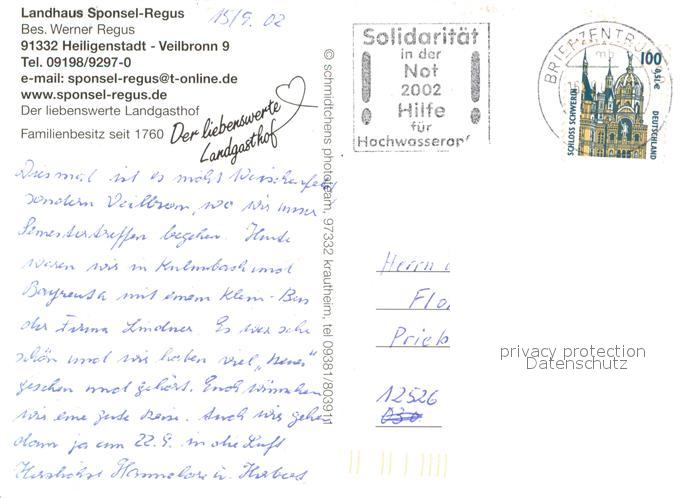 Landhaus Sponsel-Regus
Bes. Werner Regus
91332 Heiligenstadt - Veilbronn 9
Tel. 09198/9297-0
e-mail: sponsel-regus@t-online.de
www.sponsel-regus.de
Der liebenswerte Landgasthof
Familienbesitz seit 1760
Der liebenswerte
Landgasthof
15/9. 02
Diesmal ist es nicht
sondern Veilbronn, wo wir unser
Semestertreffen begehen. Heute
waren wir in Kulmbach und
Bayreuth mit einem Klein-Bus
der Firma Lindner. Es war sehr
schön und wir haben viel „Neues“
gesehen und gehört. Euch wünschen
wir eine gute Reise. Auch wir gehen
dann ja am 22.9. in die Luft
Herzlichst Hannelore u. Herbert
© schmidtchens phototeam, 97332 krautheim, tel 09381/803911
Solidarität
in der
Not
2002
Hilfe
für
Hochwasseropf
BRIEFZENTRUM
mb
100
0,51€
SCHLOSS SCHWERIN
DEUTSCHLAND
Herrn
Flo
Prieb
12526
030
privacy protection
Datenschutz